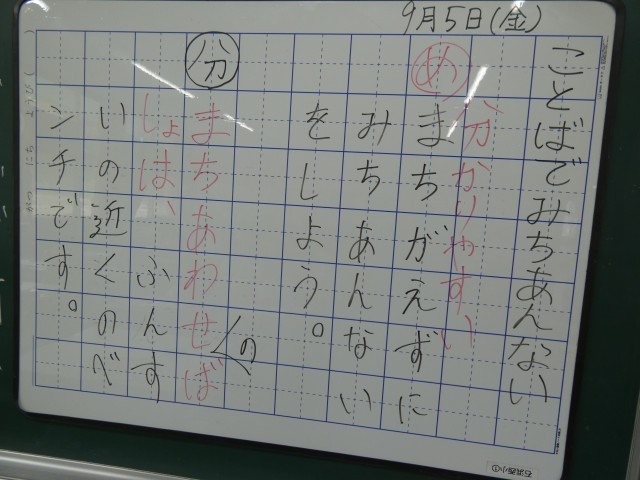 9月5日(金)
ことばでみちあんない
分かりやすい
めまちがえずに
みちあんない
をしよう。
くの
分まちあわせば
しょは、ふんす
いの近くのべ
ンチです。
石浜西小①